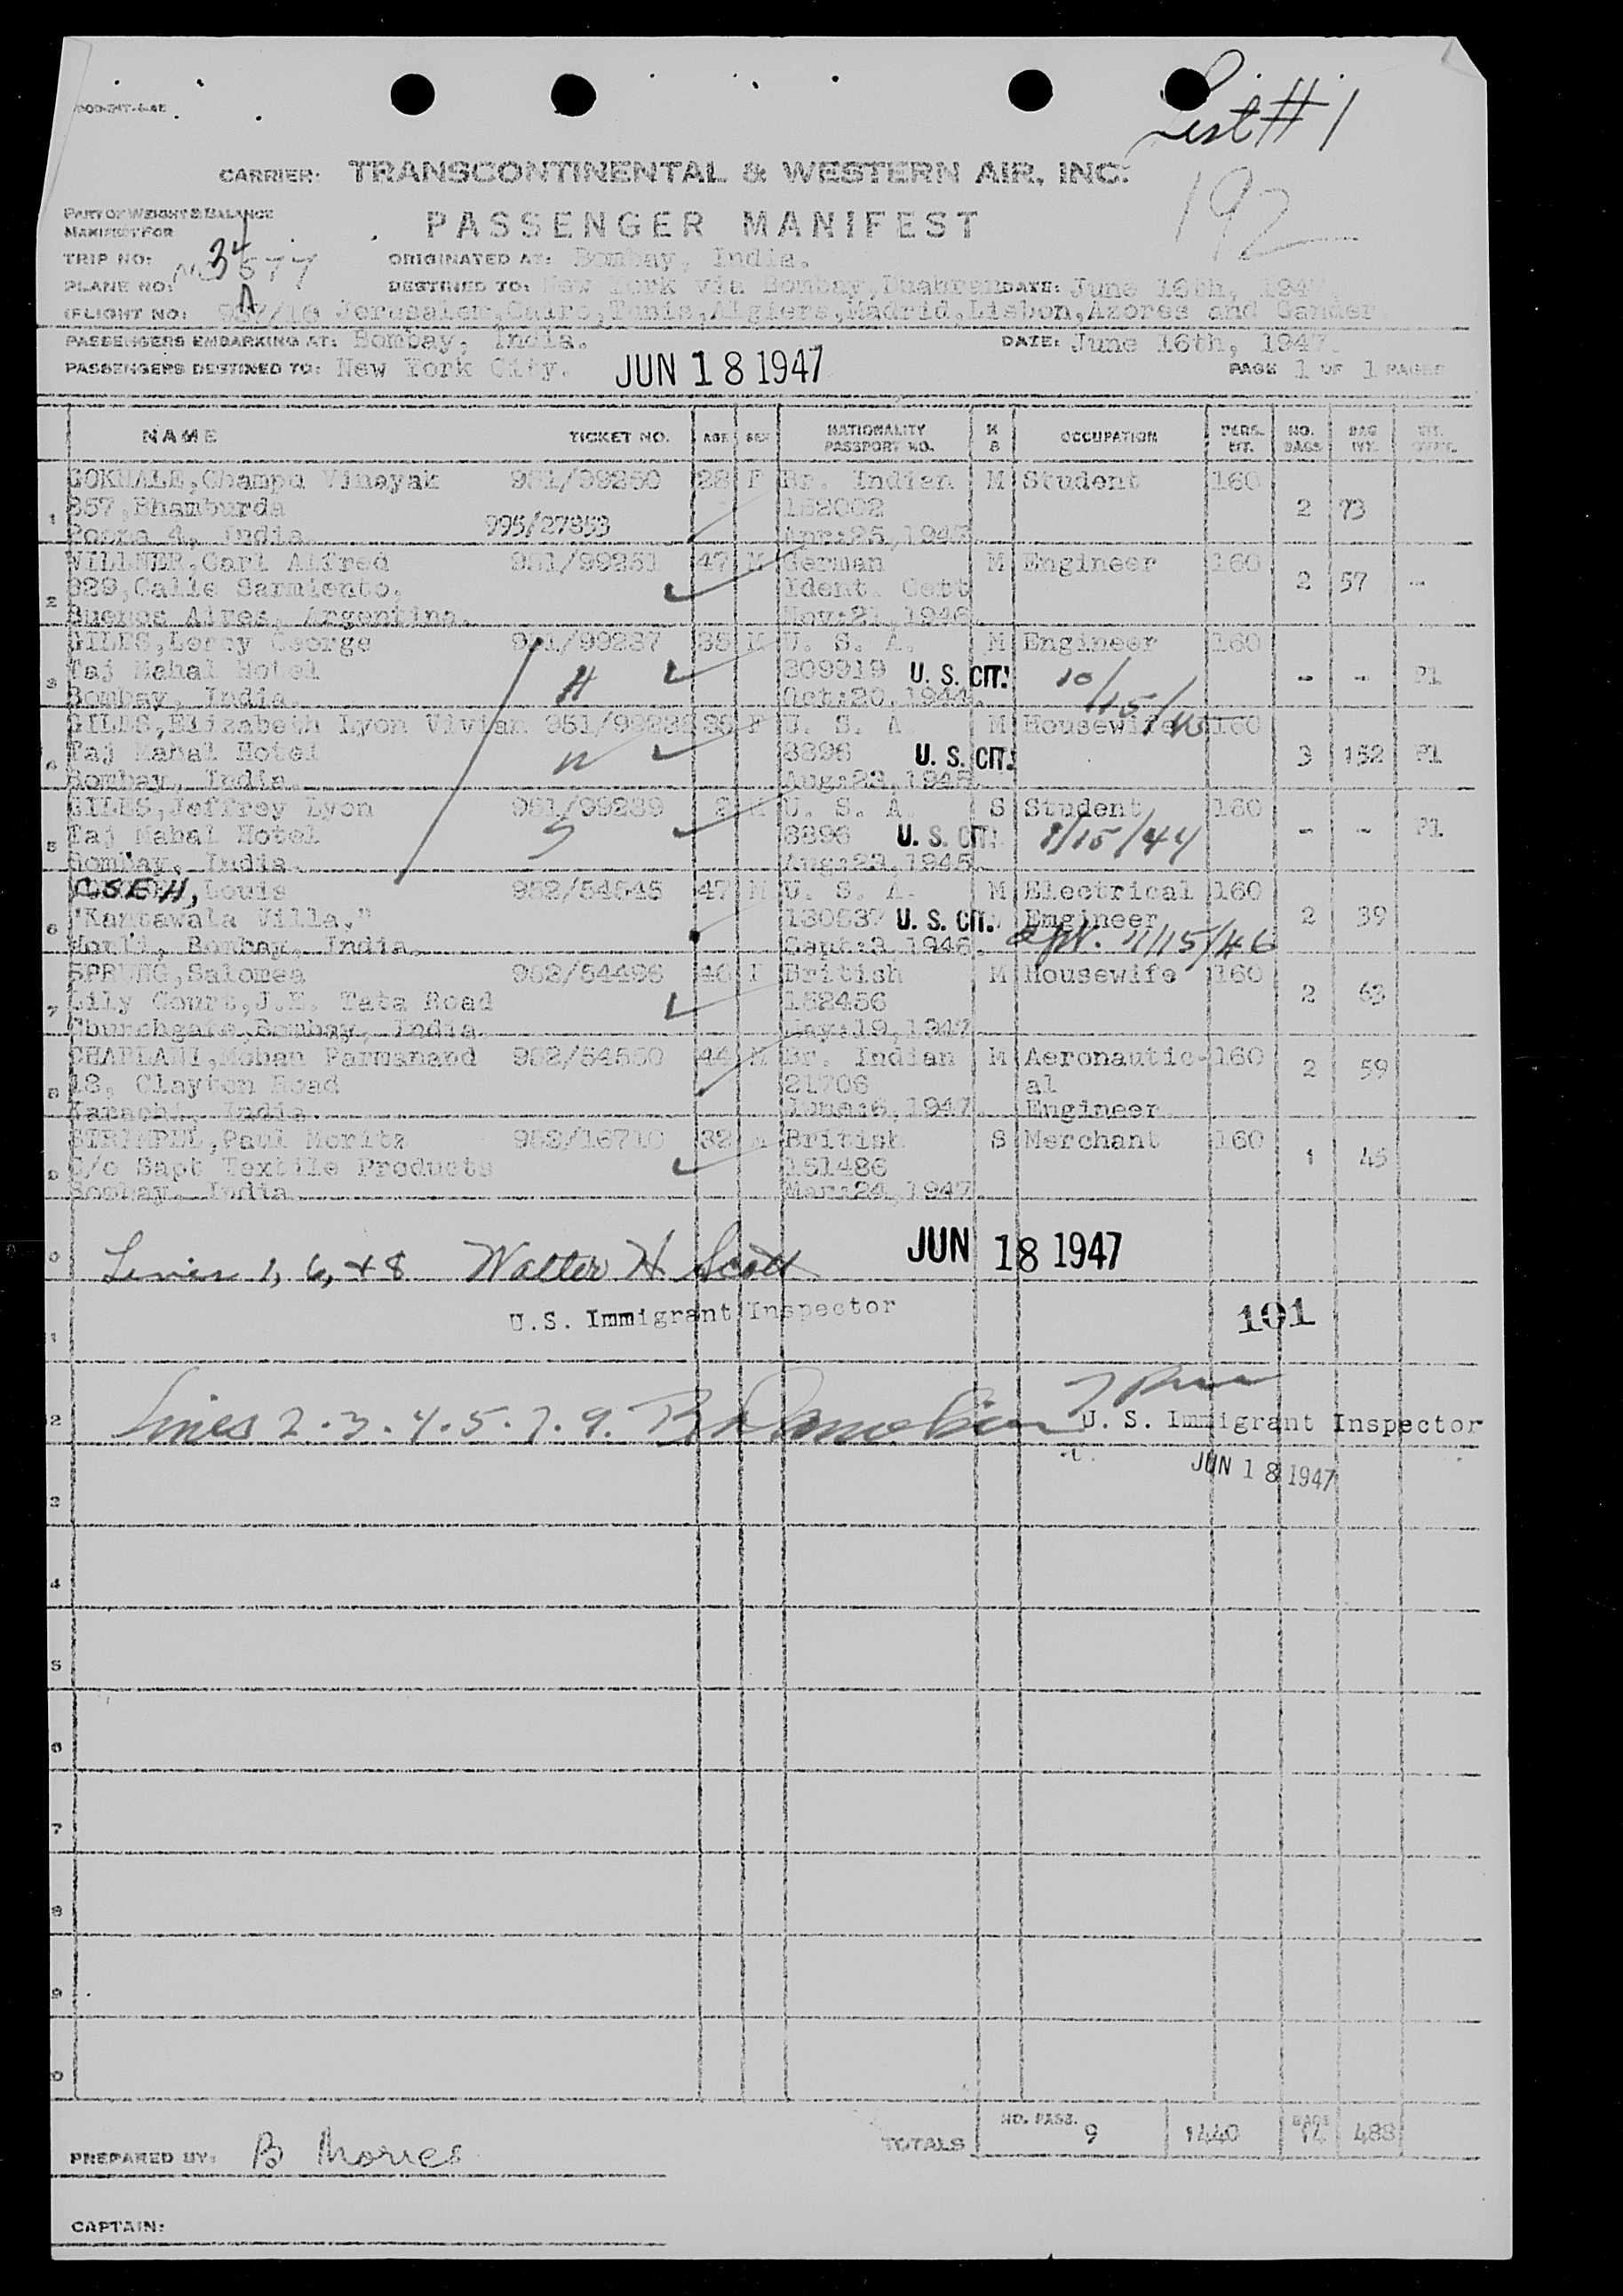 List # 1
CARRIER: TRANSCONTINENTAL & WESTERN AIR, INC.
192
PART OF WEIGHT & BALANCE
MANIFEST FOR
PASSENGER MANIFEST
TRIP NO:
ORIGINATED AT: Bombay, India.
PLANE NO:
DESTINED TO: New York via Bombay, DATE: June 16th, 1947.
FLIGHT NO: Jerusalem,Cairo,Tunis,Algiers,Madrid,Lisbon,Azores and Gander
PASSENGERS EMBARKING AT: Bombay, India. DATE: June 16th, 1947.
PASSENGERS DESTINED TO: New York City. JUN 18 1947 PAGE 1 OF 1 PAGES
NAME TICKET NO. AGE SEX NATIONALITY PASSPORT NO. OCCUPATION PERS. WT. NO. BAGS BAG WT.
GOKHALE,Champa Vinayak 951/99250 28 F Br. Indian M Student 160
357,Bhamburda 162002 2 73
1 Poona 4, India. 995/27853 Apr:25,1947.
WILLNER,Carl Alfred 951/99251 47 M German M Engineer 160
929,Calle Sarmiento, Ident. Cert 2 57 --
2 Buenos Aires, Argentina. Nov:21,1946.
GILES,Leroy George 951/99237 35 M U. S. A. M Engineer 160
Taj Mahal Hotel H 309919 U. S. CIT. 10/15/45 -- -- P1
3 Bombay, India. Oct:20,1944.
GILES,Elizabeth Lyon Vivian 951/99238 35 F U. S. A. M Housewife 160
Taj Mahal Hotel W 3396 U. S. CIT. 3 152 P1
4 Bombay, India. Aug:23,1945.
GILES,Jeffrey Lyon 951/99239 2 M U. S. A. S Student 160
Taj Mahal Hotel S 3396 U. S. CIT. 8/15/44 -- -- P1
5 Bombay, India. Aug:23,1945.
CSEH, Louis 952/54545 47 M U. S. A. M Electrical 160
"Kantawala Villa," 130537 U. S. CIT. Engineer 2 39
6 Bombay, India. Sept:3,1946. 11/15/46
SPRUNG,Salomea 952/54496 46 F British M Housewife 160
Lily Court,J.N. Tata Road 182456 2 63
7 Churchgate,Bombay, India. May:19,1947.
CHABLANI,Mohan Parmanand 952/54550 44 M Br. Indian M Aeronautic- 160
18, Clayton Road 21706 al 2 59
8 Karachi, India. June:6,1947. Engineer
Paul Moritz 952/16710 32 M British S Merchant 160
C/o Sapt Textile Products 151486 1 45
9 Bombay, India. Mar:24,1947.
0 Lines 1, 6, & 8 Walter H Scott JUN 18 1947
U.S. Immigrant Inspector
1 101
2 Lines 2.3.4.5.7.9.
U. S. Immigrant Inspector
JUN 18 1947
3
4
5
6
7
8
9
0
TOTALS NO. PASS. 9 1440 BAGS 14 488
PREPARED BY:
CAPTAIN: